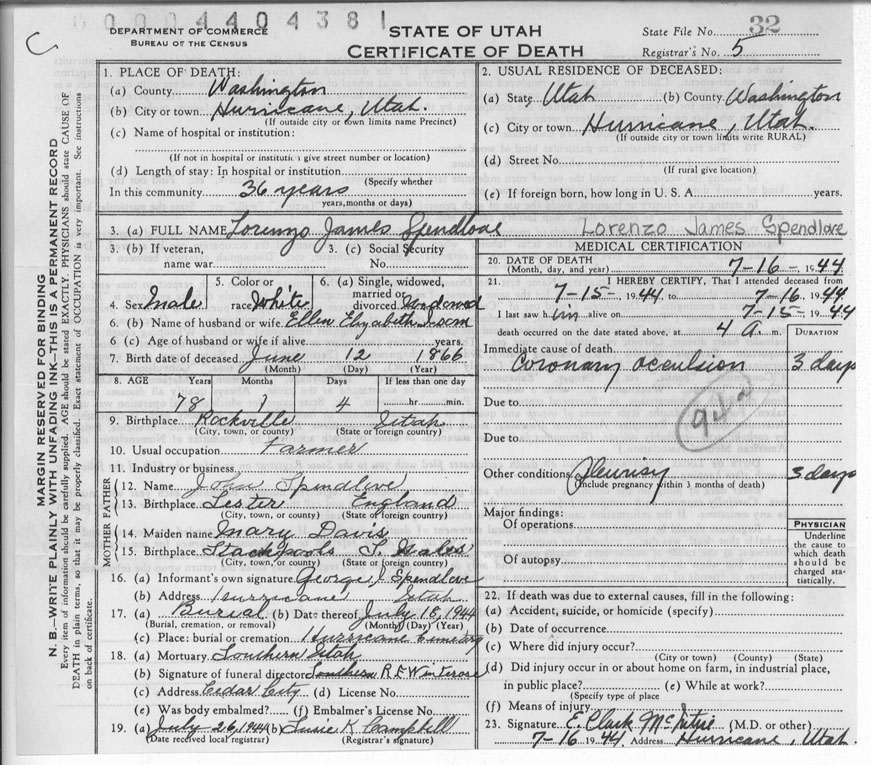 0000 4404381
DEPARTMENT OF COMMERCE
BUREAU OF THE CENSUS
STATE OF UTAH
CERTIFICATE OF DEATH
State File No. 32
Registrar's No. 5
C
MARGIN RESERVED FOR BINDING
N. B.—WRITE PLAINLY WITH UNFADING INK—THIS IS A PERMANENT RECORD
Every item of information should be carefully supplied. AGE should be stated EXACTLY. PHYSICIANS should state CAUSE OF
DEATH in plain terms, so that it may be properly classified. Exact statement of OCCUPATION is very important. See instructions
on back of certificate.
1. PLACE OF DEATH:
(a) County Washington
(b) City or town Hurricane, Utah.
(If outside city or town limits name Precinct)
(c) Name of hospital or institution:
(If not in hospital or institution give street number or location)
(d) Length of stay: In hospital or institution
(Specify whether
In this community 36 years
years, months or days)
2. USUAL RESIDENCE OF DECEASED:
(a) State Utah (b) County Washington
(c) City or town Hurricane, Utah.
(If outside city or town limits write RURAL)
(d) Street No.
(If rural give location)
(e) If foreign born, how long in U. S. A. years.
3. (a) FULL NAME Lorenzo James Spendlove
Lorenzo James Spendlove
3. (b) If veteran, name war
3. (c) Social Security No.
4. Sex Male
5. Color or race White
6. (a) Single, widowed, married or divorced Widowed
6. (b) Name of husband or wife Ellen Elyzabeth Isom
6 (c) Age of husband or wife if alive years.
7. Birth date of deceased June 12 1866
(Month) (Day) (Year)
8. AGE Years Months Days If less than one day
78 1 4 hr. min.
9. Birthplace Rockville Utah
(City, town, or county) (State or foreign country)
10. Usual occupation Farmer
11. Industry or business
FATHER
12. Name John Spendlove
13. Birthplace Lester England
(City, town, or county) (State or foreign country)
MOTHER
14. Maiden name Mary Davis
15. Birthplace Stackpools S. Wales
(City, town, or county) (State or foreign country)
16. (a) Informant's own signature George J Spendlove
(b) Address Hurricane Utah
17. (a) Burial (b) Date thereof July 18, 1944
(Burial, cremation, or removal) (Month) (Day) (Year)
(c) Place: burial or cremation Hurricane Cemetery
18. (a) Mortuary Southern Utah
(b) Signature of funeral director Southern R E Winterose
(c) Address Cedar City (d) License No.
(e) Was body embalmed? (f) Embalmer's License No.
19. (a) July 26, 1944 (b) Susie K Campbell
(Date received local registrar) (Registrar's signature)
MEDICAL CERTIFICATION
20. DATE OF DEATH
(Month, day, and year) 7-16- 1944
21. I HEREBY CERTIFY, That I attended deceased from
7-15- 1944, to 7-16 1944
I last saw him alive on 7-15- 1944
death occurred on the date stated above, at 4 A. m.
DURATION
Immediate cause of death
Coronary occulsion 3 days
Due to
94a
Due to
Other conditions Pleurisy 3 days
(Include pregnancy within 3 months of death)
Major findings:
Of operations
Of autopsy
PHYSICIAN
Underline
the cause to
which death
should be
charged sta-
tistically.
22. If death was due to external causes, fill in the following:
(a) Accident, suicide, or homicide (specify)
(b) Date of occurrence
(c) Where did injury occur?
(City or town) (County) (State)
(d) Did injury occur in or about home on farm, in industrial place,
in public place? (e) While at work?
(Specify type of place
(f) Means of injury
23. Signature E. Clark McIntire (M.D. or other)
7-16 1944 Address Hurricane, Utah.